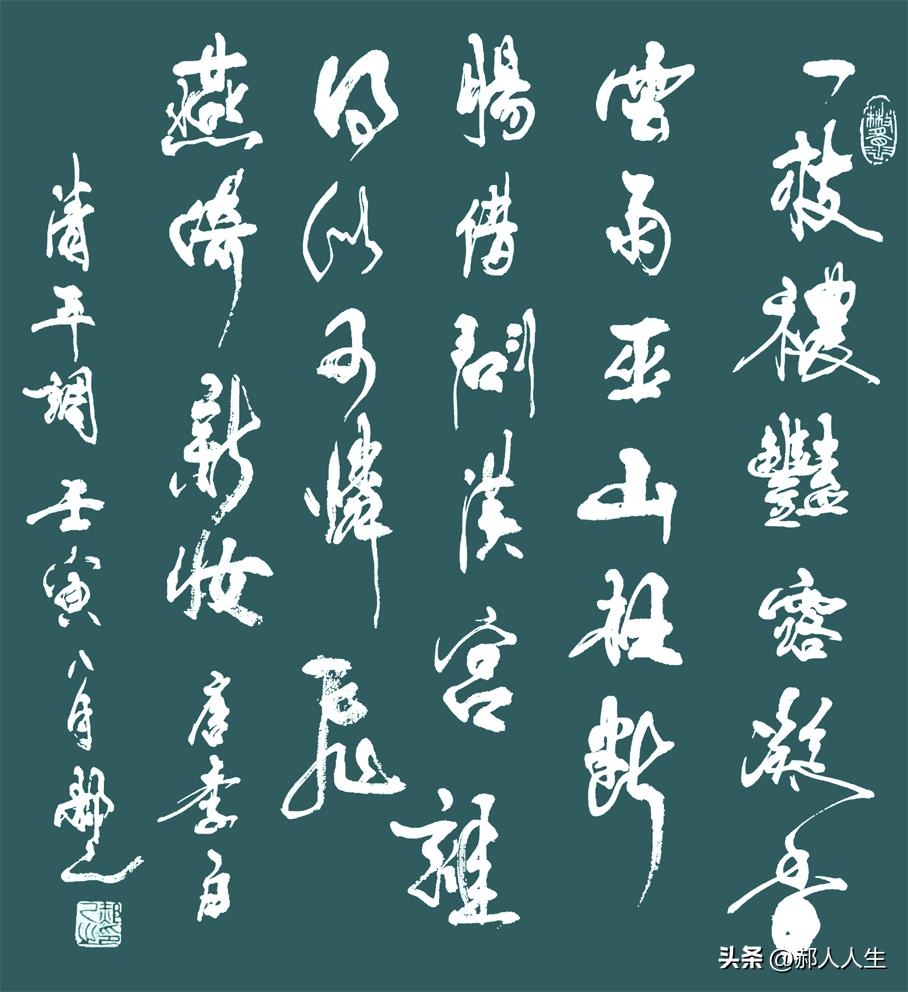 一枝穠豔露凝香
雲雨巫山枉斷
腸借問漢宮誰
得似可憐飛
燕倚新妝唐李白
清平調壬寅八月郝
头条 @郝人人生